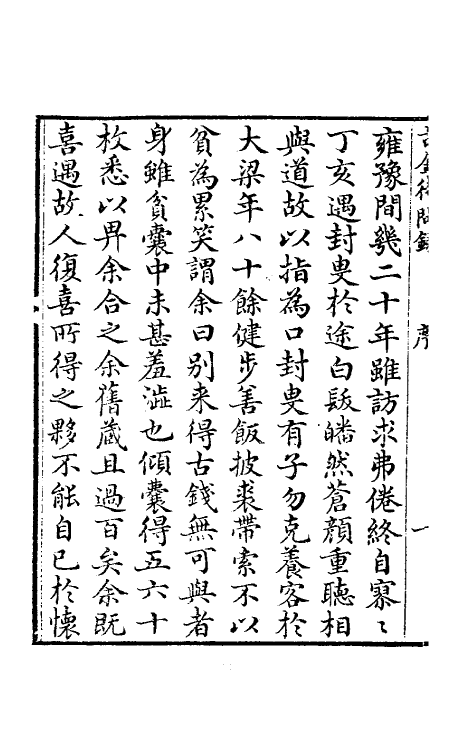 古金待問錄 序 一
雍豫間幾二十年雖訪求弗倦終自寥〻
丁亥遇封叟於途白髮皤然蒼顏重聽相
與道故以指為口封叟有子勿克養客於
大梁年八十餘健步善飯披裘帶索不以
貧為累笑謂余曰別来得古錢無可與者
身雖貧囊中未甚羞澁也傾囊得五六十
枚悉以畀余合之余舊蔵且過百矣余既
喜遇故人復喜所得之夥不能自已於懷